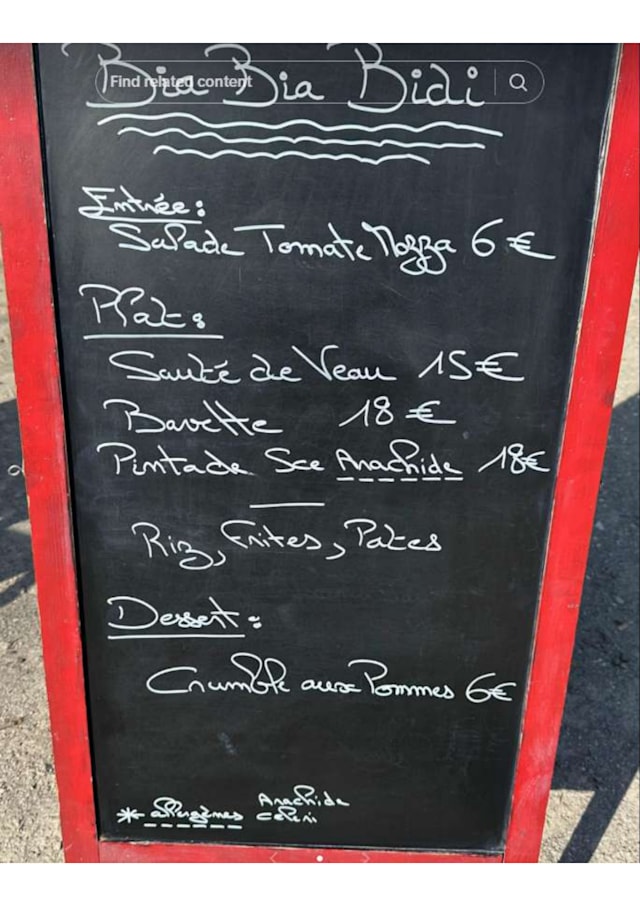 Bia Bia Bidi
Find related content
Entrée :
Salade Tomate Mozza 6 €
Plat :
Sauté de Veau 15 €
Bavette 18 €
Pintade Sce Arachide 18€
Riz, Frites, Pates
Dessert :
Crumble aux Pommes 6€
* allergènes Arachide
Céleri